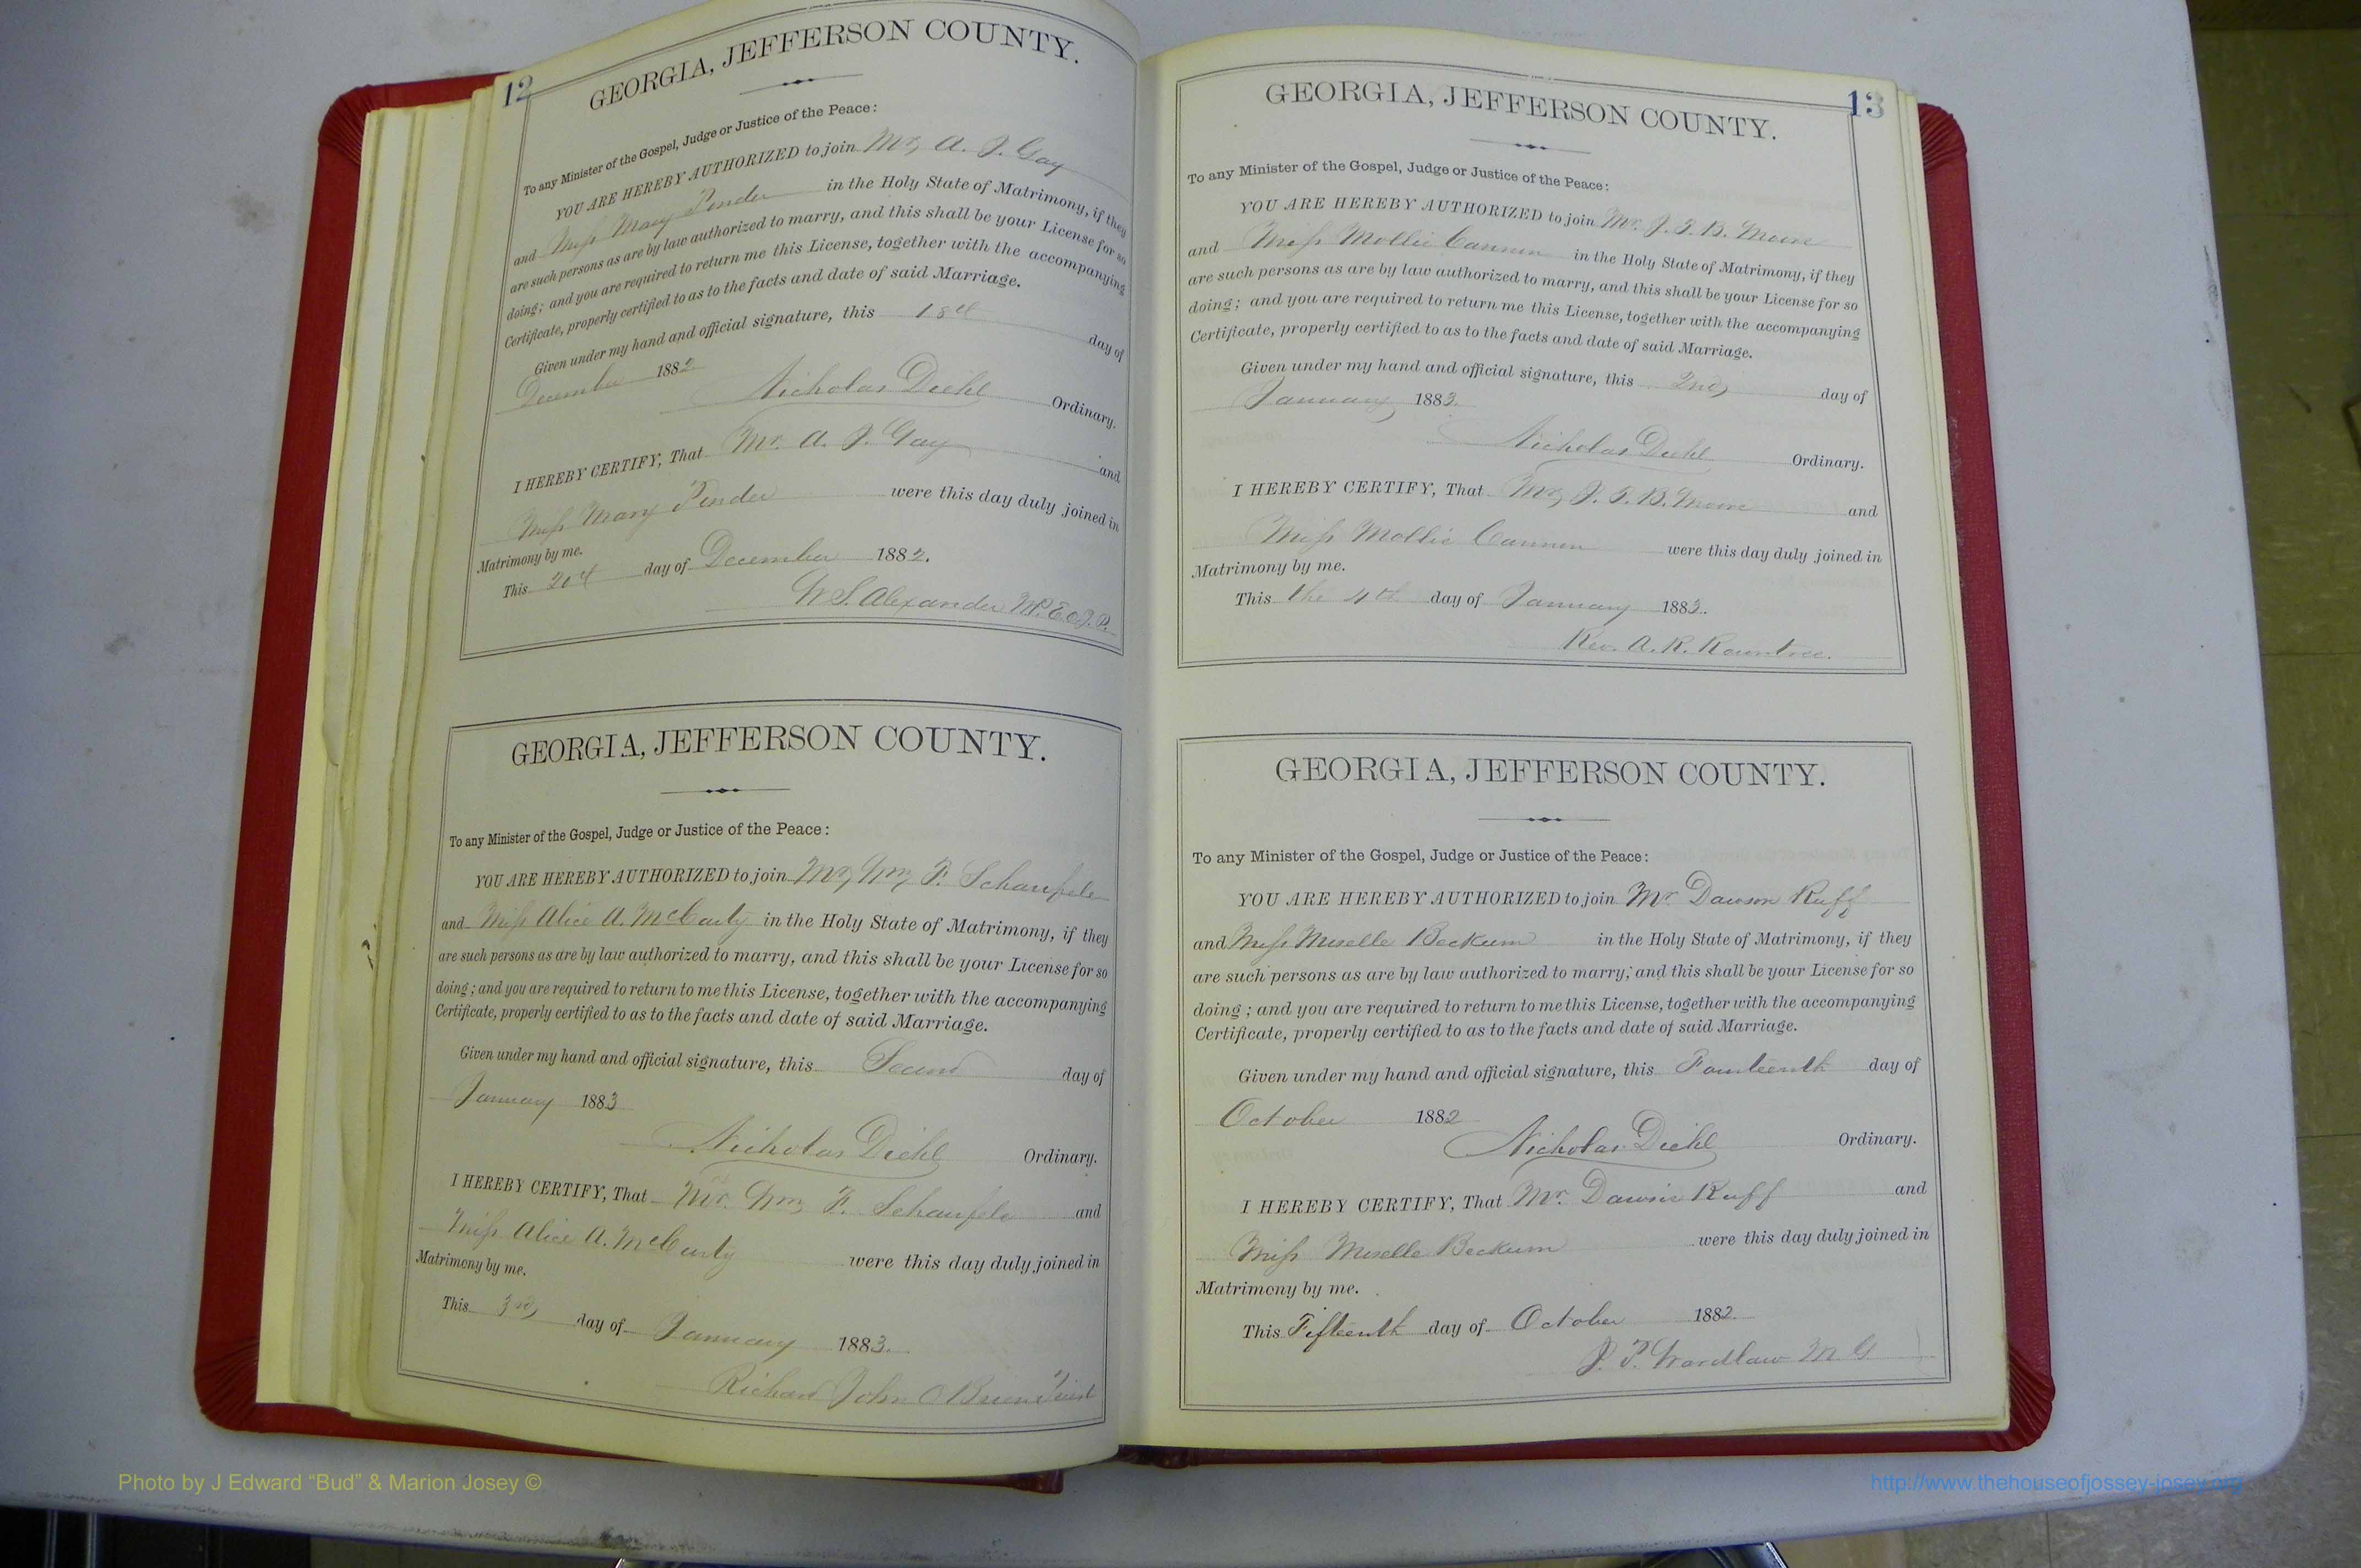 12
GEORGIA, JEFFERSON COUNTY.
To any Minister of the Gospel, Judge or Justice of the Peace:
YOU ARE HEREBY AUTHORIZED to join Mr. A. J. Gay
and Miss Mary Pender in the Holy State of Matrimony, if they
are such persons as are by law authorized to marry, and this shall be your License for so
doing; and you are required to return me this License, together with the accompanying
Certificate, properly certified to as to the facts and date of said Marriage.
Given under my hand and official signature, this 18th day of
December 1882
Nicholas Diehl Ordinary.
I HEREBY CERTIFY, That Mr. A. J. Gay and
Miss Mary Pender were this day duly joined in
Matrimony by me.
This 20th day of December 1882.
W. S. Alexander
GEORGIA, JEFFERSON COUNTY.
To any Minister of the Gospel, Judge or Justice of the Peace:
YOU ARE HEREBY AUTHORIZED to join Mr. Wm. F. Schaufele
and Miss Alice A. McCarty in the Holy State of Matrimony, if they
are such persons as are by law authorized to marry, and this shall be your License for so
doing; and you are required to return to me this License, together with the accompanying
Certificate, properly certified to as to the facts and date of said Marriage.
Given under my hand and official signature, this Second day of
January 1883
Nicholas Diehl Ordinary.
I HEREBY CERTIFY, That Mr. Wm. F. Schaufele and
Miss Alice A. McCarty were this day duly joined in
Matrimony by me.
This 3rd day of January 1883.
Richard John OBrien Priest
13
GEORGIA, JEFFERSON COUNTY.
To any Minister of the Gospel, Judge or Justice of the Peace:
YOU ARE HEREBY AUTHORIZED to join Mr. J. B. Moore
and Miss Mollie Cannon in the Holy State of Matrimony, if they
are such persons as are by law authorized to marry, and this shall be your License for so
doing; and you are required to return me this License, together with the accompanying
Certificate, properly certified to as to the facts and date of said Marriage.
Given under my hand and official signature, this 2nd day of
January 1883.
Nicholas Diehl Ordinary.
I HEREBY CERTIFY, That Mr. J. B. Moore and
Miss Mollie Cannon were this day duly joined in
Matrimony by me.
This the 4th day of January 1883.
Rev. A. R. Rountree.
GEORGIA, JEFFERSON COUNTY.
To any Minister of the Gospel, Judge or Justice of the Peace:
YOU ARE HEREBY AUTHORIZED to join Mr. Dawson Ruff
and Miss Beckum in the Holy State of Matrimony, if they
are such persons as are by law authorized to marry, and this shall be your License for so
doing; and you are required to return to me this License, together with the accompanying
Certificate, properly certified to as to the facts and date of said Marriage.
Given under my hand and official signature, this Fourteenth day of
October 1882
Nicholas Diehl Ordinary.
I HEREBY CERTIFY, That Mr. Ruff and
Miss Beckum were this day duly joined in
Matrimony by me.
This Fifteenth day of October 1882
J. P. Wardlaw M. G
Photo by J Edward “Bud” & Marion Josey ©
http://www.thehouseofjossey-josey.org